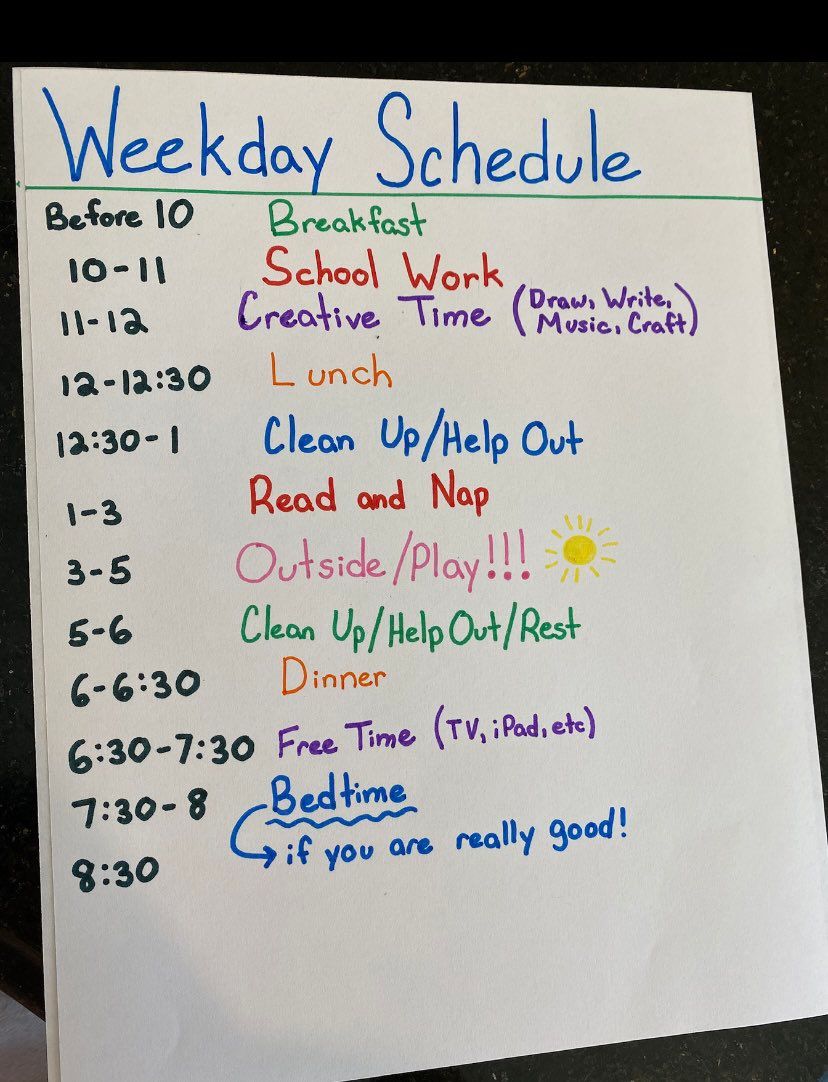 Weekday Schedule
Before 10 Breakfast
10-11 School Work
11-12 Creative Time (Draw, Write,
Music, Craft)
12-12:30 Lunch
12:30-1 Clean Up/Help Out
1-3 Read and Nap
3-5 Outside/Play!!!
5-6 Clean Up/Help Out/Rest
6-6:30 Dinner
6:30-7:30 Free Time (TV, iPad, etc)
7:30-8 Bedtime
8:30 if you are really good!